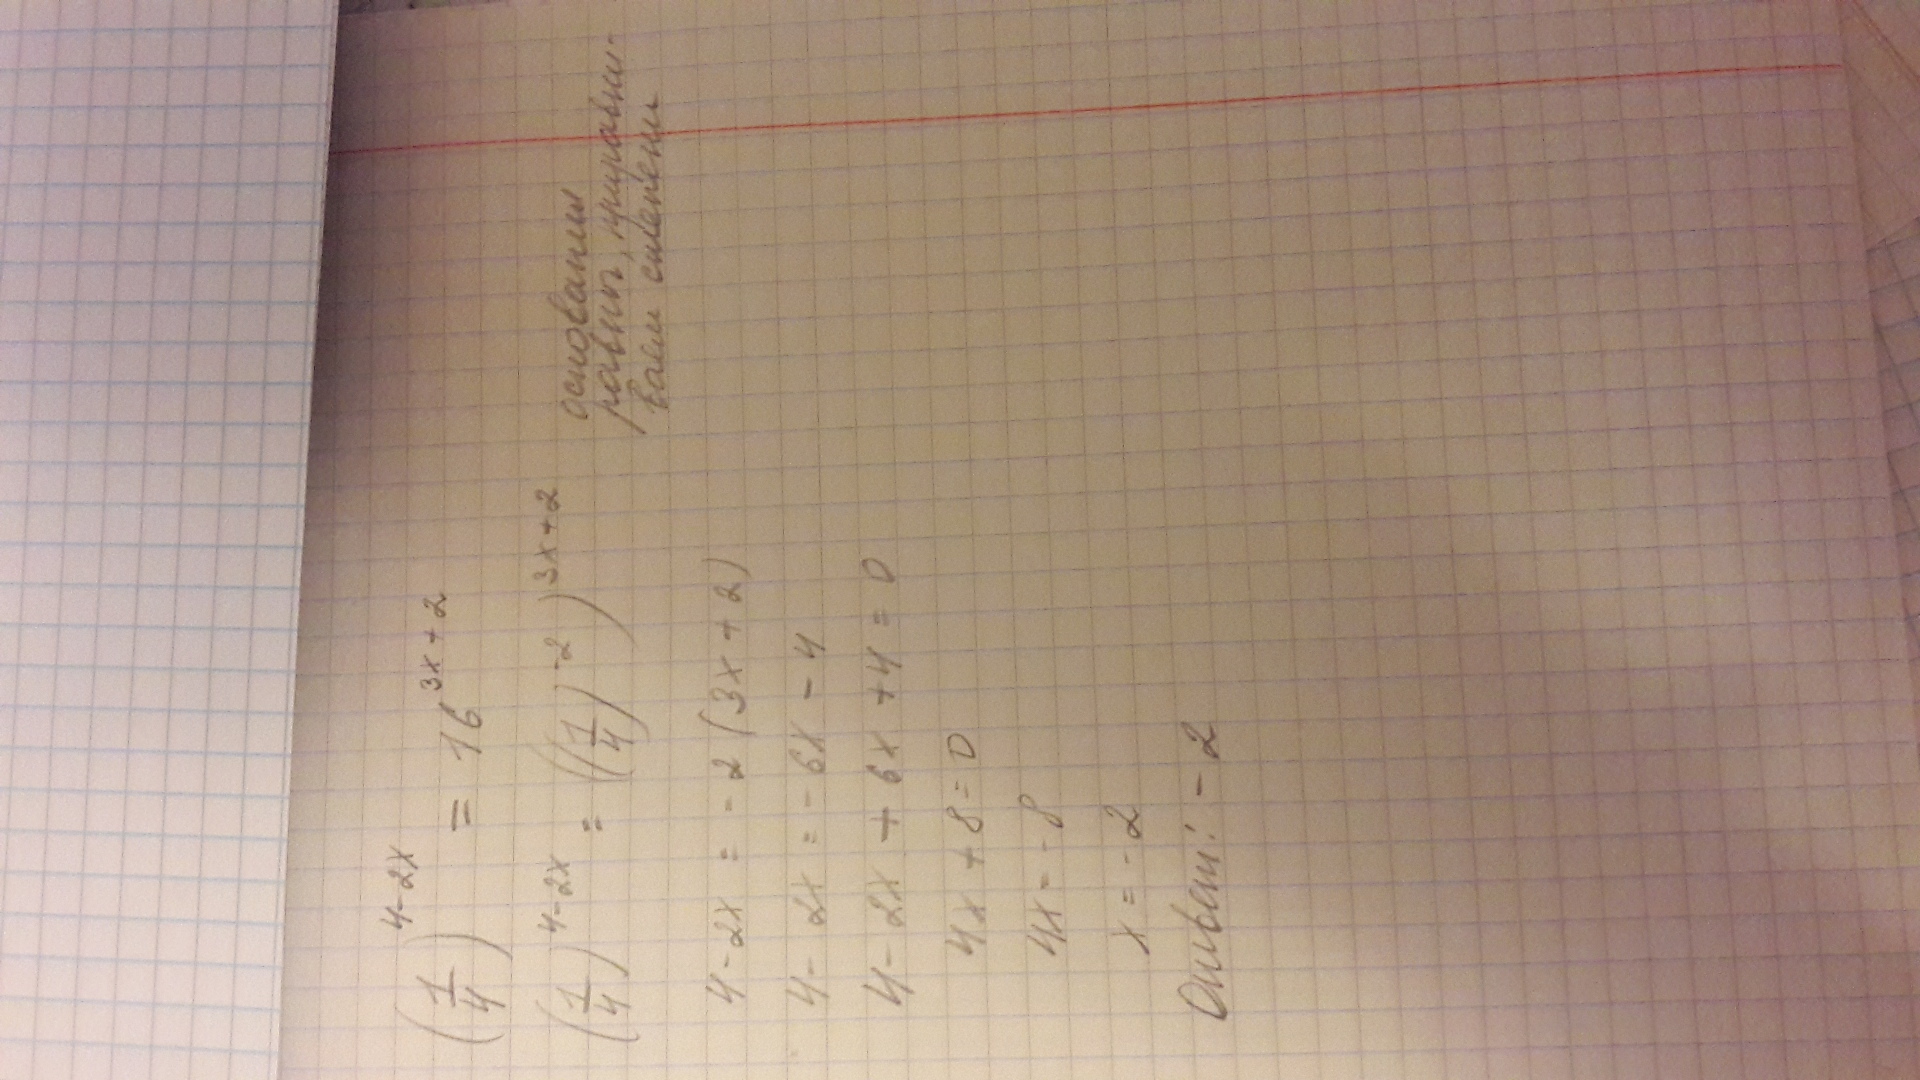 (1/4)^(4-2x) = 16^(3x+2)
(1/4)^(4-2x) = ((1/4)^(-2))^(3x+2)
основания
равны, приравни-
ваем степени
4-2x = -2(3x+2)
4-2x = -6x-4
4-2x+6x+4=0
4x+8=0
4x=-8
x=-2
Ответ: -2